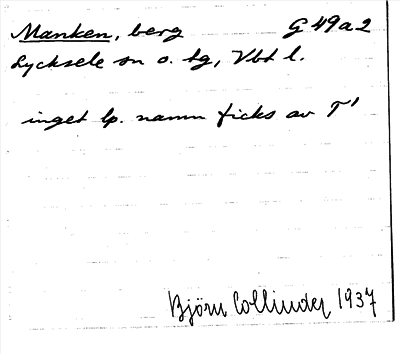 Manken, berg G 49a2
Lycksele sn o. tg, Vbt l.
inget lp. namn ficks av T'
Björn Collinder 1937